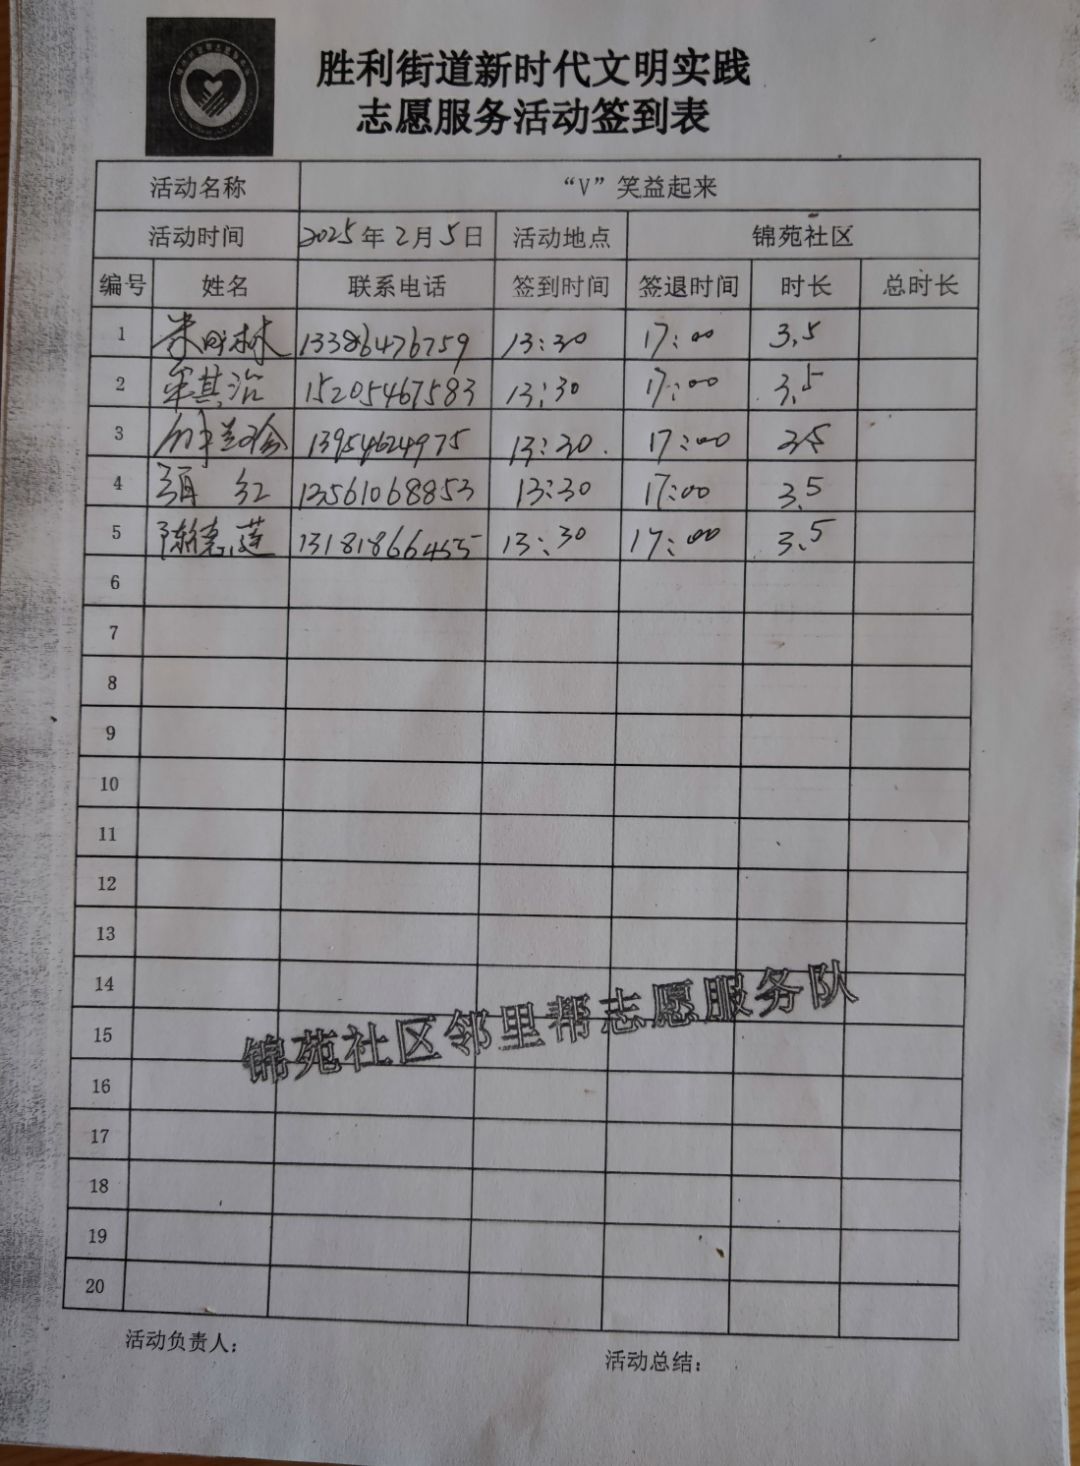 胜利街道新时代文明实践
志愿服务活动签到表
活动名称 “V”笑益起来
活动时间 2025年2月5日 活动地点 锦苑社区
编号 姓名 联系电话 签到时间 签退时间 时长 总时长
1 13386476759 13:30 17:00 3.5
2 15205467583 13:30 17:00 3.5
3 13954624975 13:30 17:00 3.5
4 红 13561068853 13:30 17:00 3.5
5 陈德莲 13181866455 13:30 17:00 3.5
6
7
8
9
10
11
12
13
14
15
16
17
18
19
20
锦苑社区邻里帮志愿服务队
活动负责人：
活动总结：